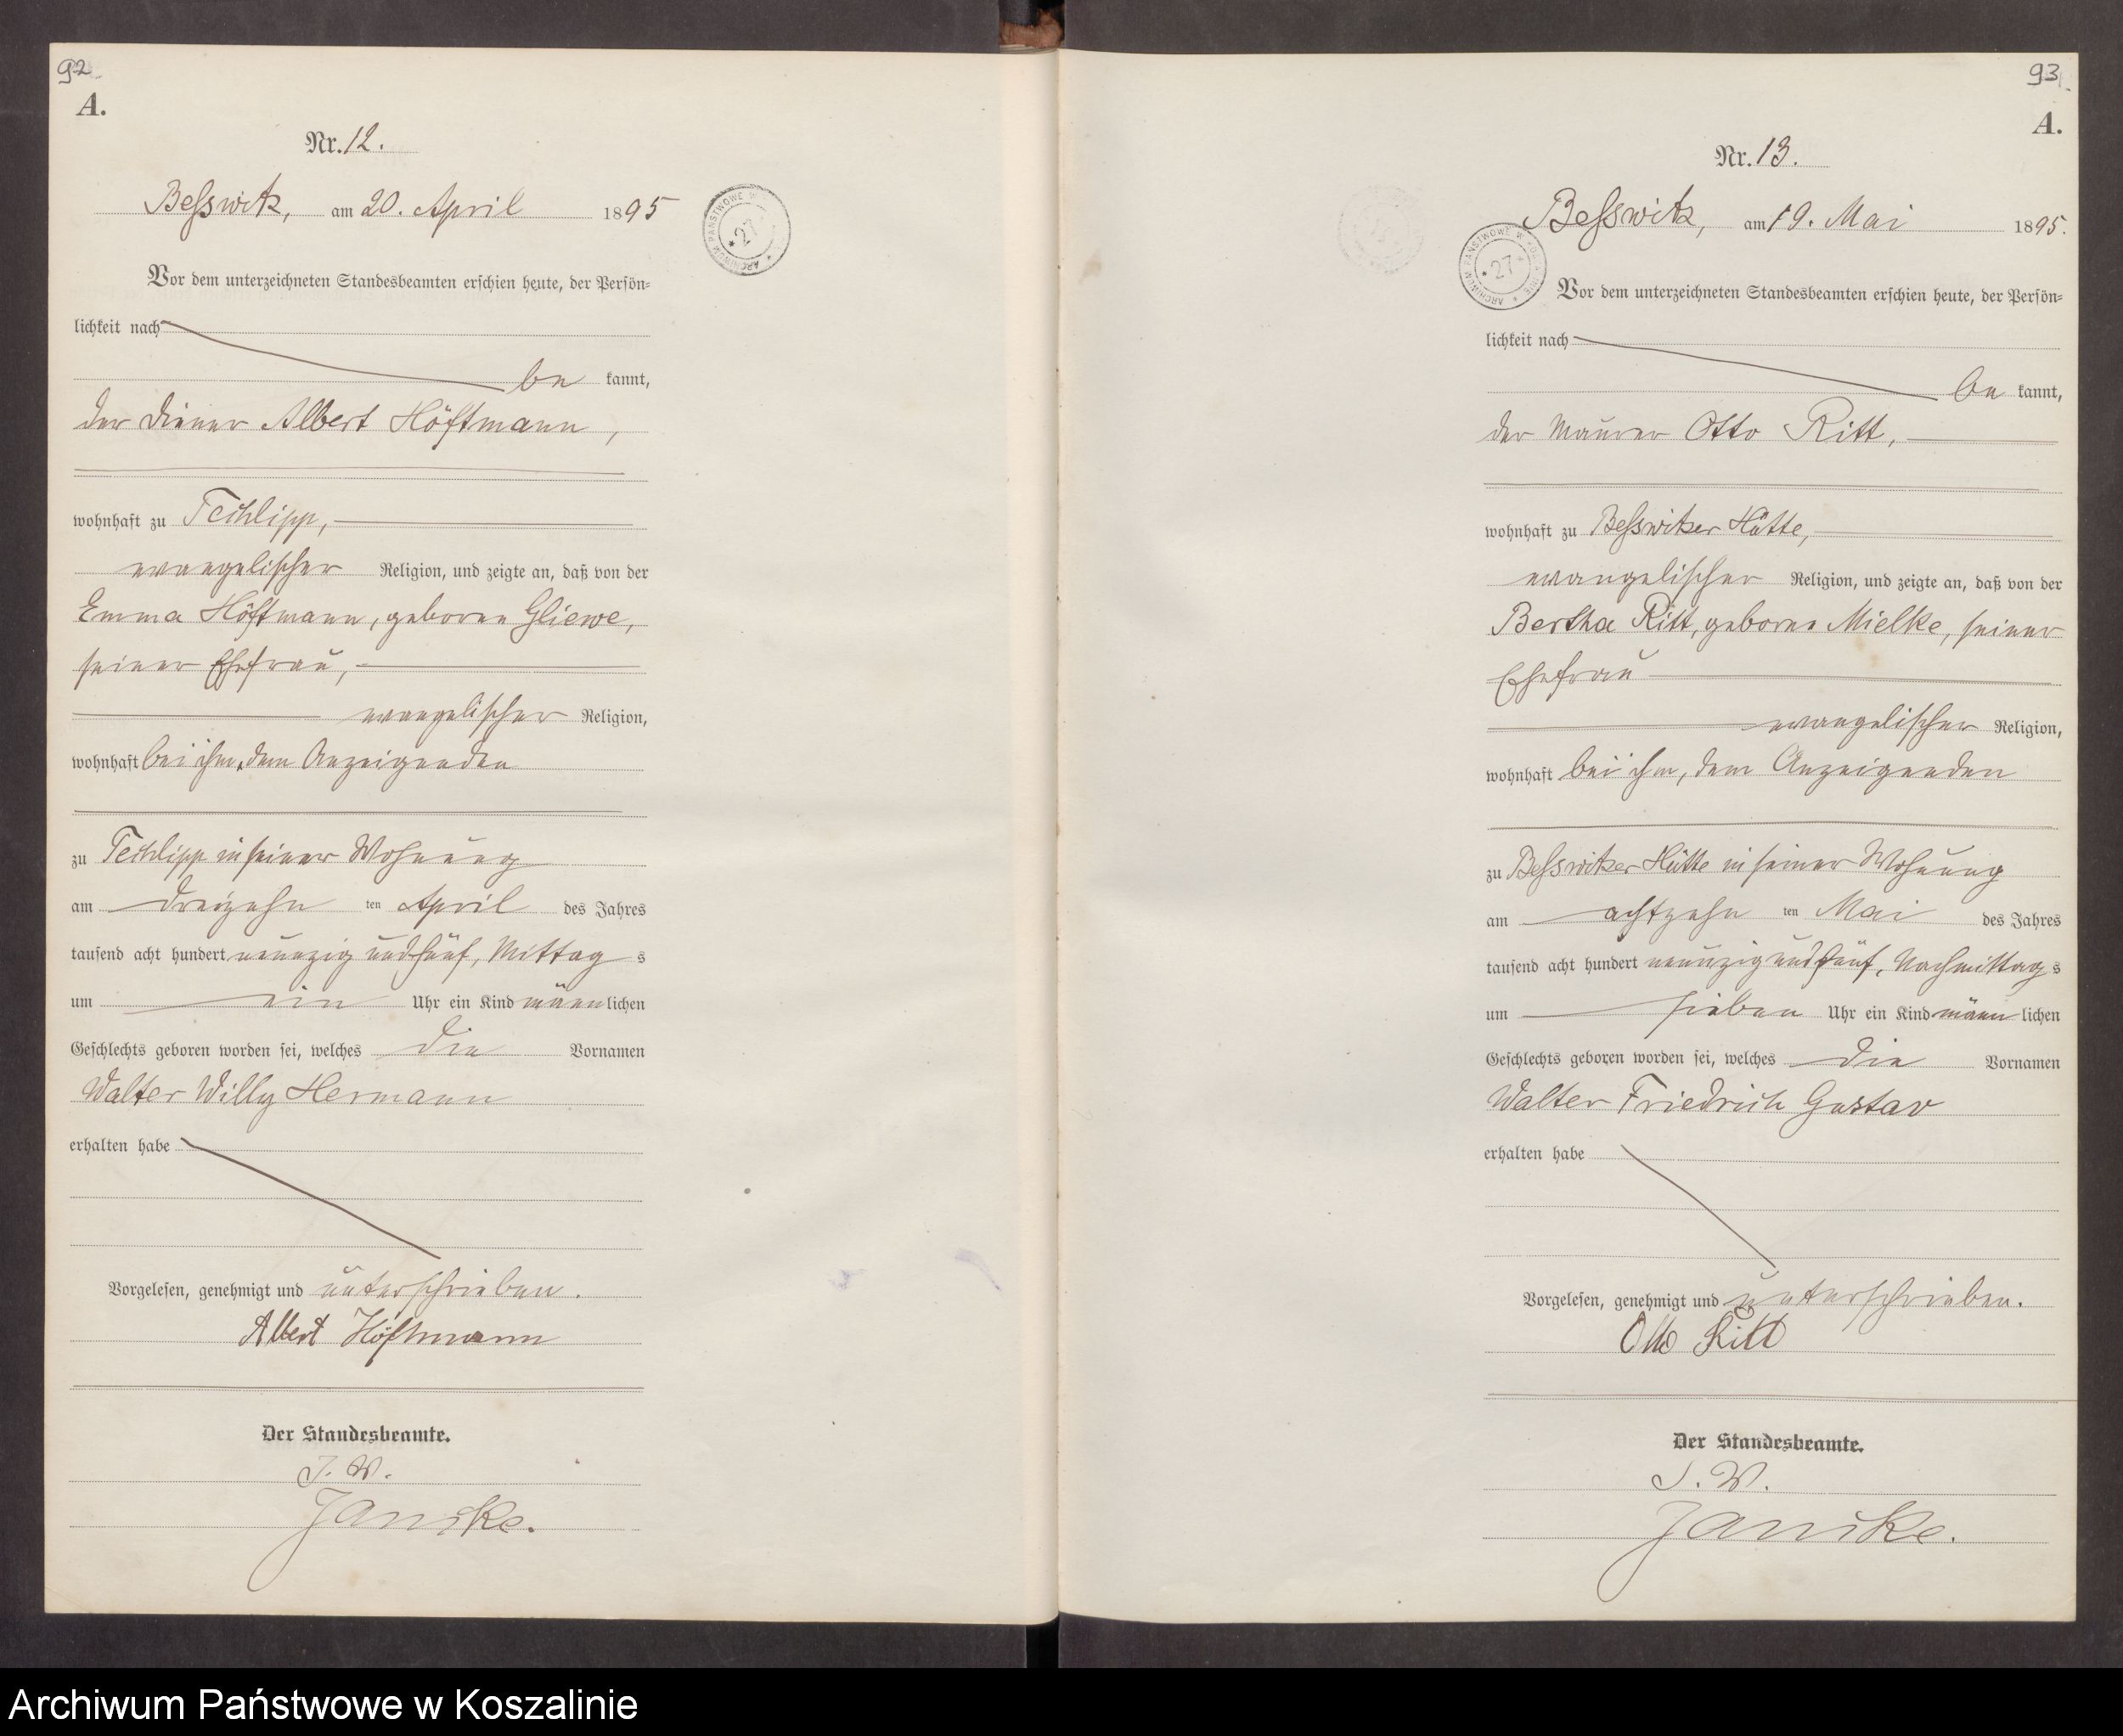 92
A.
Nr. 12.
Beßwitz, am 20. April 1895
Vor dem unterzeichneten Standesbeamten erschien heute, der Persön=
lichkeit nach
be kannt,
der Diener Albert Höftmann,
wohnhaft zu Techlipp,
evangelischer Religion, und zeigte an, daß von der
Emma Höftmann, geborne Gliewe,
seiner Ehefrau,
evangelischer Religion,
wohnhaft bei ihm, dem Anzeigenden
zu Techlipp in seiner Wohnung
am dreizehn ten April des Jahres
tausend acht hundert neunzig und fünf, Mittag s
um ein Uhr ein Kind männ lichen
Geschlechts geboren worden sei, welches die Vornamen
Walter Willy Hermann
erhalten habe
Vorgelesen, genehmigt und unterschrieben.
Albert Höftmann
Der Standesbeamte.
J. V.
Janike.
ARCHIWUM PAŃSTWOWE W
* 27 *
93
A.
Nr. 13.
Beßwitz, am 19. Mai 1895.
ARCHIWUM PAŃSTWOWE W KOSZALINIE
* 27 *
Vor dem unterzeichneten Standesbeamten erschien heute, der Persön=
lichkeit nach
be kannt,
der Maurer Otto Ritt,
wohnhaft zu Beßwitzer Hütte,
evangelischer Religion, und zeigte an, daß von der
Bertha Ritt, geborne Mielke, seiner
Ehefrau
evangelischer Religion,
wohnhaft bei ihm, dem Anzeigenden
zu Beßwitzer Hütte in seiner Wohnung
am achtzehn ten Mai des Jahres
tausend acht hundert neunzig und fünf, Nachmittag s
um sieben Uhr ein Kind männ lichen
Geschlechts geboren worden sei, welches die Vornamen
Walter Friedrich Gustav
erhalten habe
Vorgelesen, genehmigt und unterschrieben.
Otto Ritt
Der Standesbeamte.
J. V.
Janike.
Archiwum Państwowe w Koszalinie